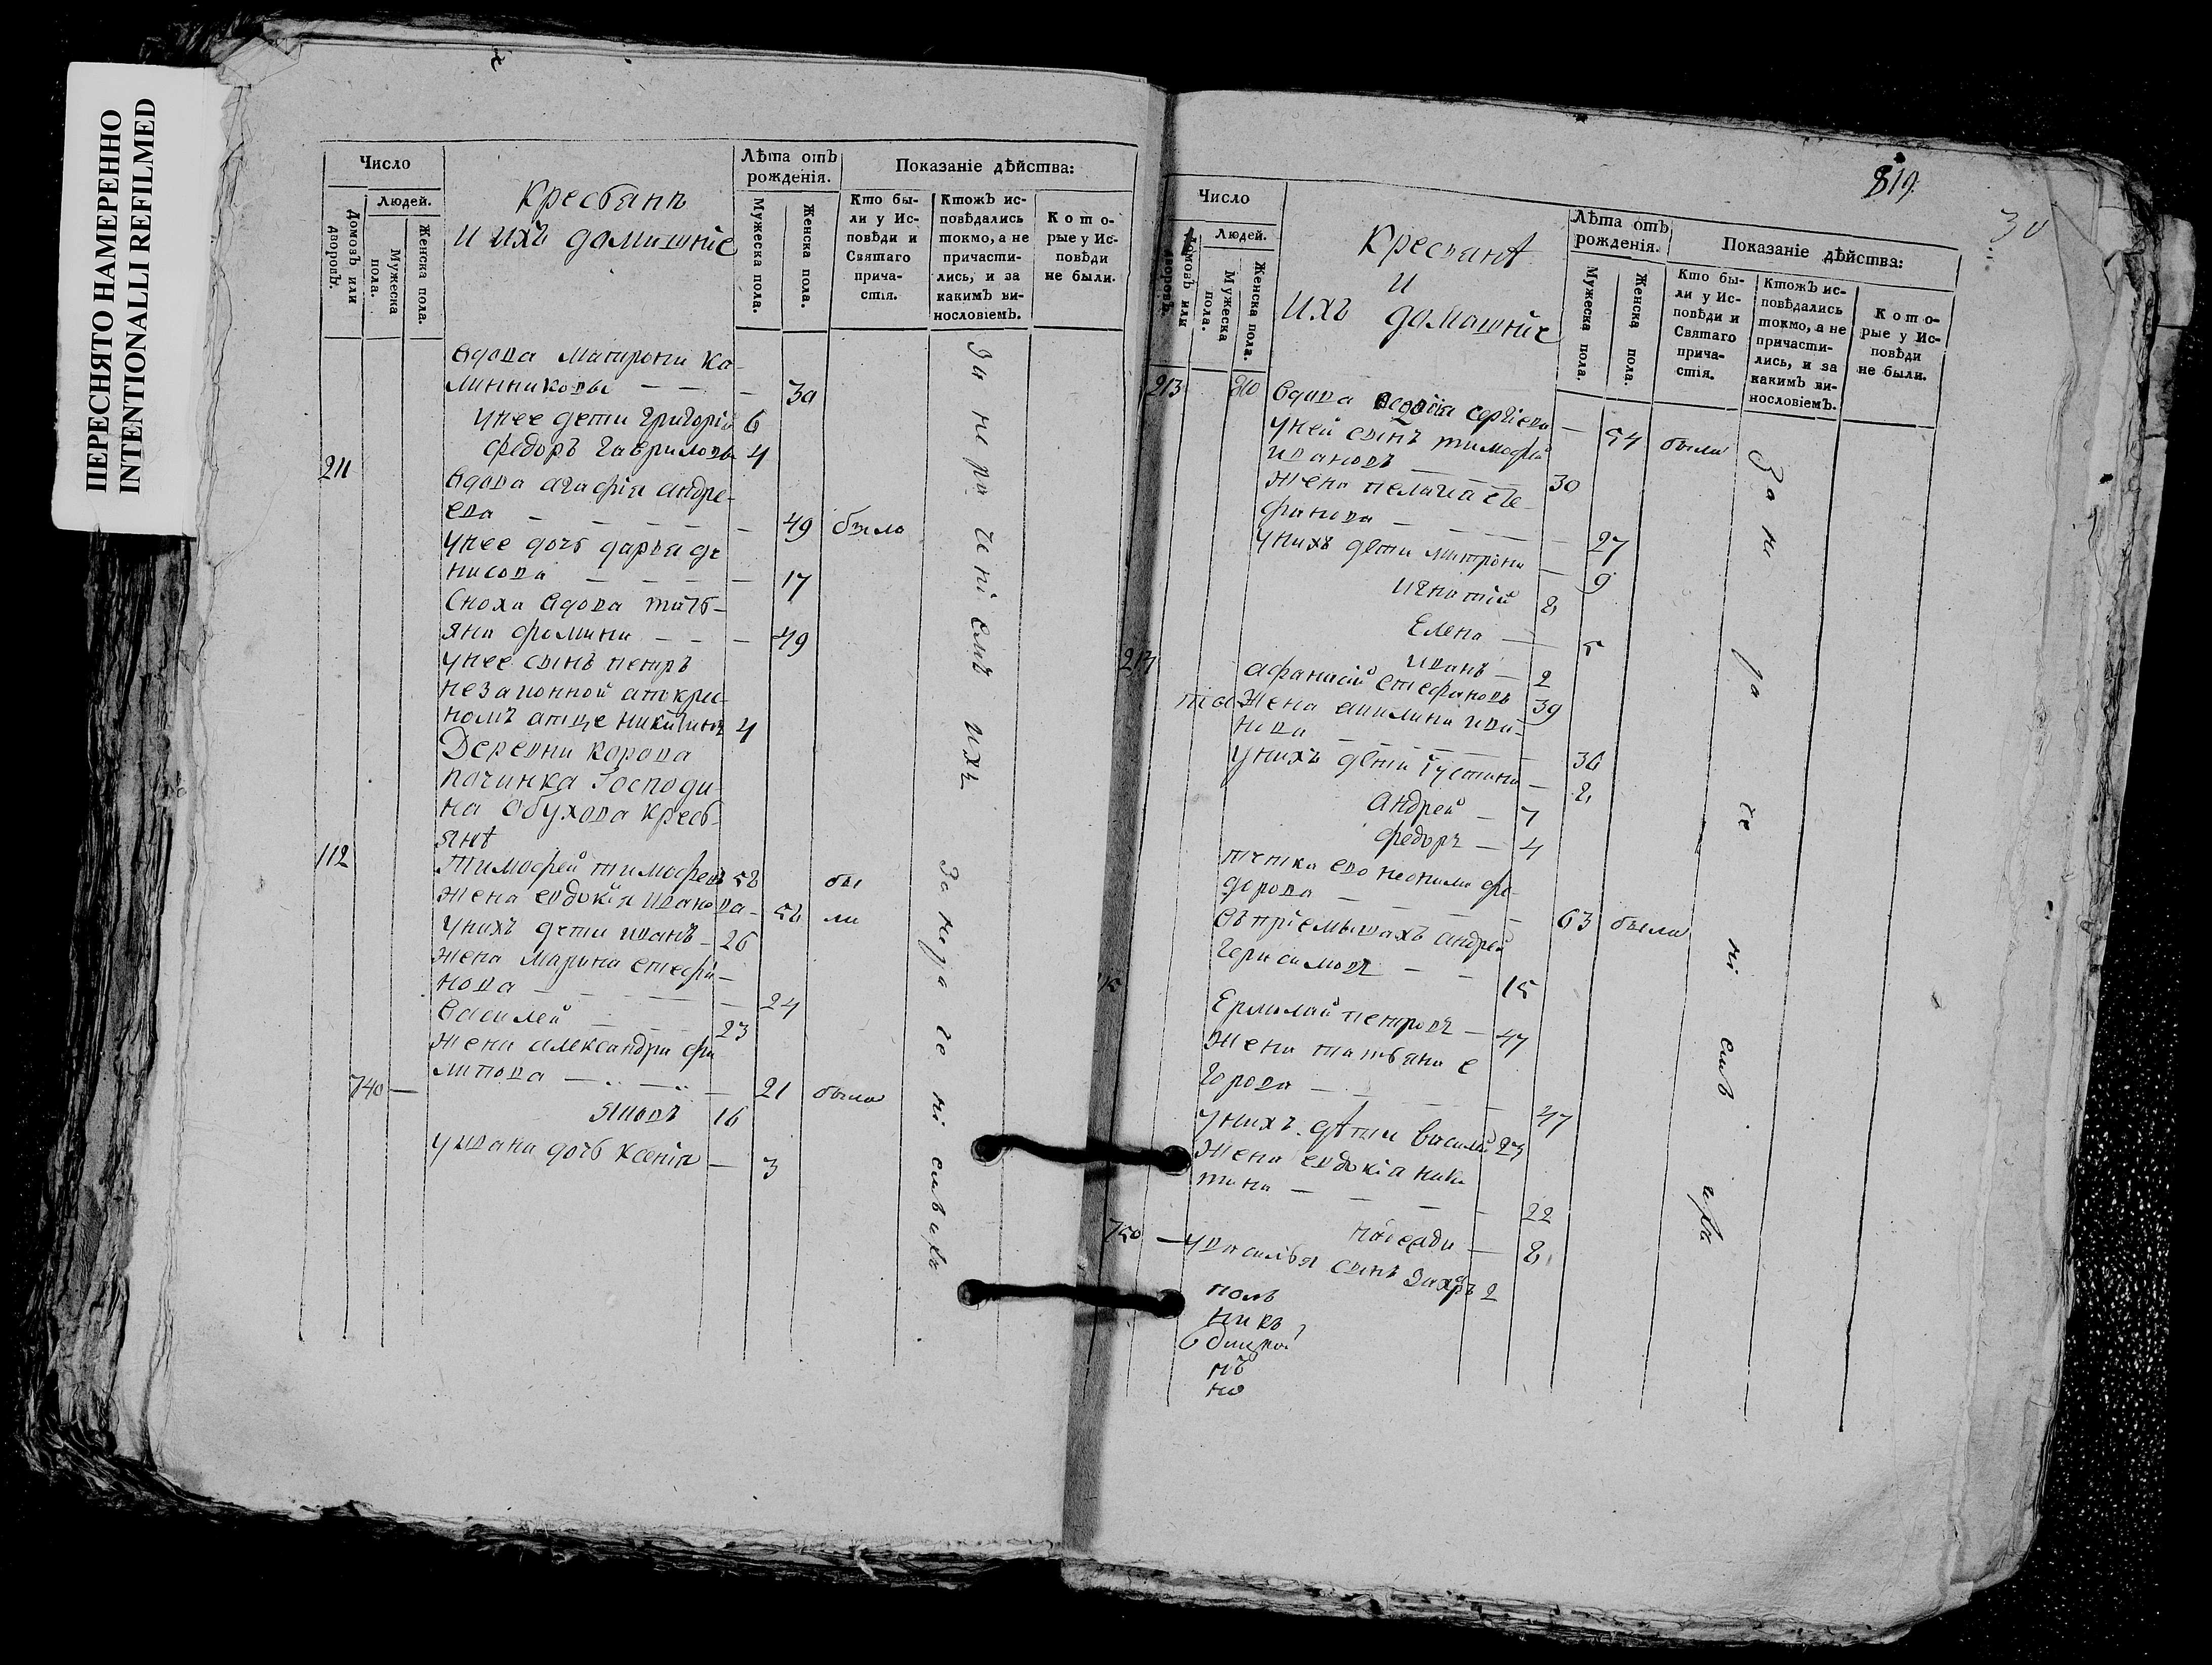 ПЕРЕСНЯТО НАМЕРЕННО
INTENTIONALLI REFILMED
Число
Людей.
Домовъ или дворовъ.
Мужеска пола.
Женска пола.
Крестьянъ
и ихъ домашніе
Лѣта отъ рожденія.
Мужеска пола.
Женска пола.
Показаніе дѣйства:
Кто были у Исповѣди и Святаго причастія.
Ктожъ исповѣдались токмо, а не причастились, и за какимъ винословіемъ.
Которые у Исповѣди не были.
вдова матрона ка-
линникова — — — 30
у нее дети григорій 6
федоръ гавриловы 4
211
вдова агафія андре-
ева — — — — 49 была
у нее дочь дарья де
нисова — — — — 17
сноха вдова тать-
яна фомина — — — 49
у нее сынъ петръ
незаконной
4
Деревни корова
починка Господи-
на Обухова кресть-
янѣ
112
Тимофей тимофеевъ 58 бы
жена евдокія иванова — 58 ли
у нихъ дети иванъ — 26
жена марина стефа-
нова — — — — 24
василей — — — 23
жена александра фи
липова — — — 21 была
740 —
яковъ 16
у ивана дочь ксенія — 3
За нерачениемъ ихъ
За нерачениемъ ихъ
819
30
Число
Людей.
Домовъ или дворовъ.
Мужеска пола.
Женска пола.
Крестьянѣ
и
ихъ домашніе
Лѣта отъ рожденія.
Мужеска пола.
Женска пола.
Показаніе дѣйства:
Кто были у Исповѣди и Святаго причастія.
Ктожъ исповѣдались токмо, а не причастились, и за какимъ винословіемъ.
Которые у Исповѣди не были.
213
вдова сергіева — 54 были
у ней сынъ тимофей
ивановъ — — 30
жена пелагиа сте-
фанова — — — 27
у нихъ дети матрона — 9
игнатій 8
Елена — 5
иванъ — 2
афанасій стефановъ 39
жена акилина ива-
нова — — — — 36
у нихъ дети Іустина — 8
Андрей — 7
федоръ — 4
тетка ево неонила фе-
дорова — — — — 63 были
въ пріемышахъ андрей
герасимовъ — — 15
Ермолай петровъ — 47
жена татьяна е
горова — — — — 47
у нихъ дѣти василей 23
жена евдокіа ники
тина — — — — 22
8
750 — у василья сынъ захаръ 2
За нерачениемъ ихъ